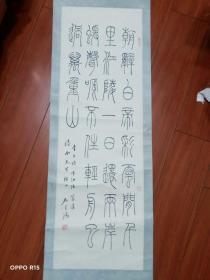 朝辭白帝彩雲間千
里江陵一日還兩岸
猿聲啼不住輕舟已
過萬重山
李白詩
OPPO R15